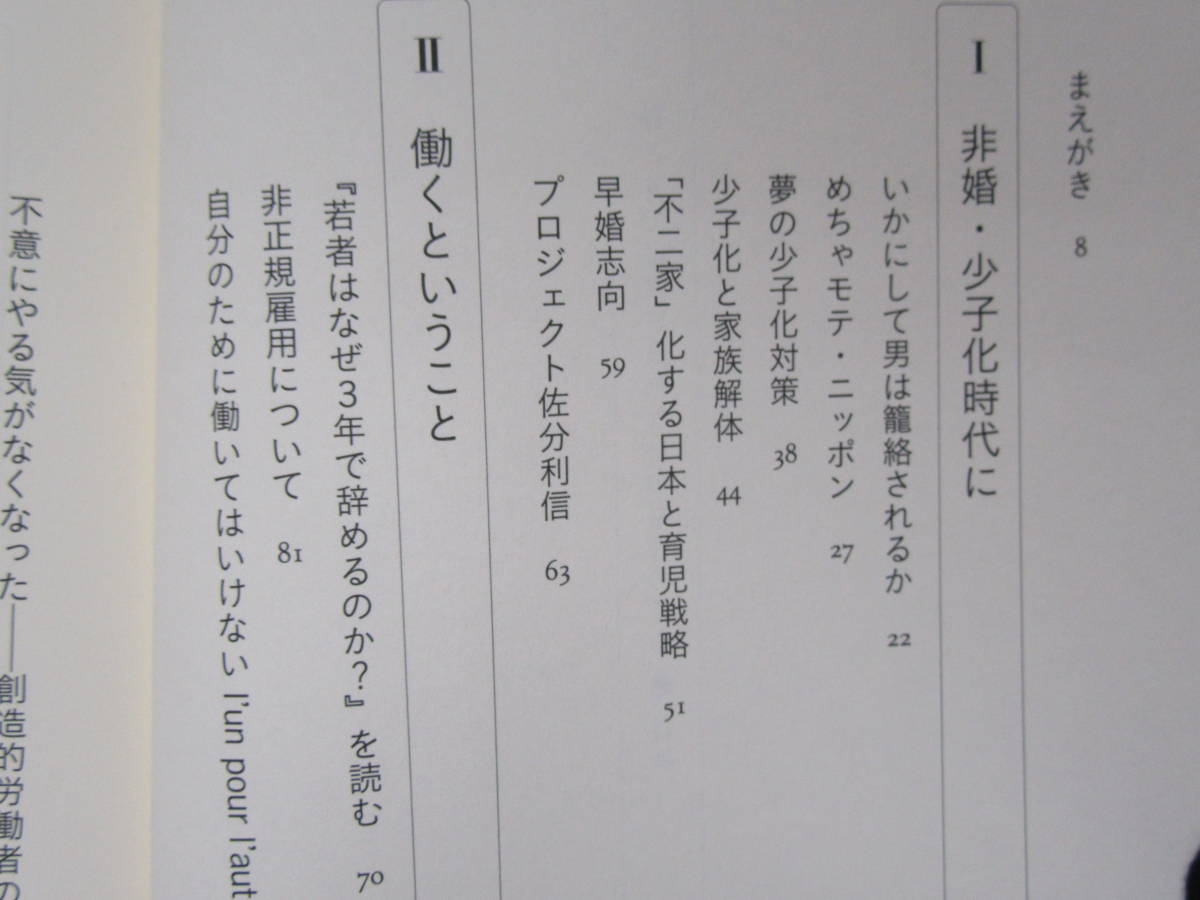 まえがき 8
I 非婚・少子化時代に
いかにして男は籠絡されるか 22
めちゃモテ・ニッポン 27
夢の少子化対策 38
少子化と家族解体 44
「不二家」化する日本と育児戦略 51
早婚志向 59
プロジェクト佐分利信 63
II 働くということ
『若者はなぜ3年で辞めるのか？』を読む 70
非正規雇用について 81
自分のために働いてはいけない l'un pour l'aut
不意にやる気がなくなった――創造的労働者の